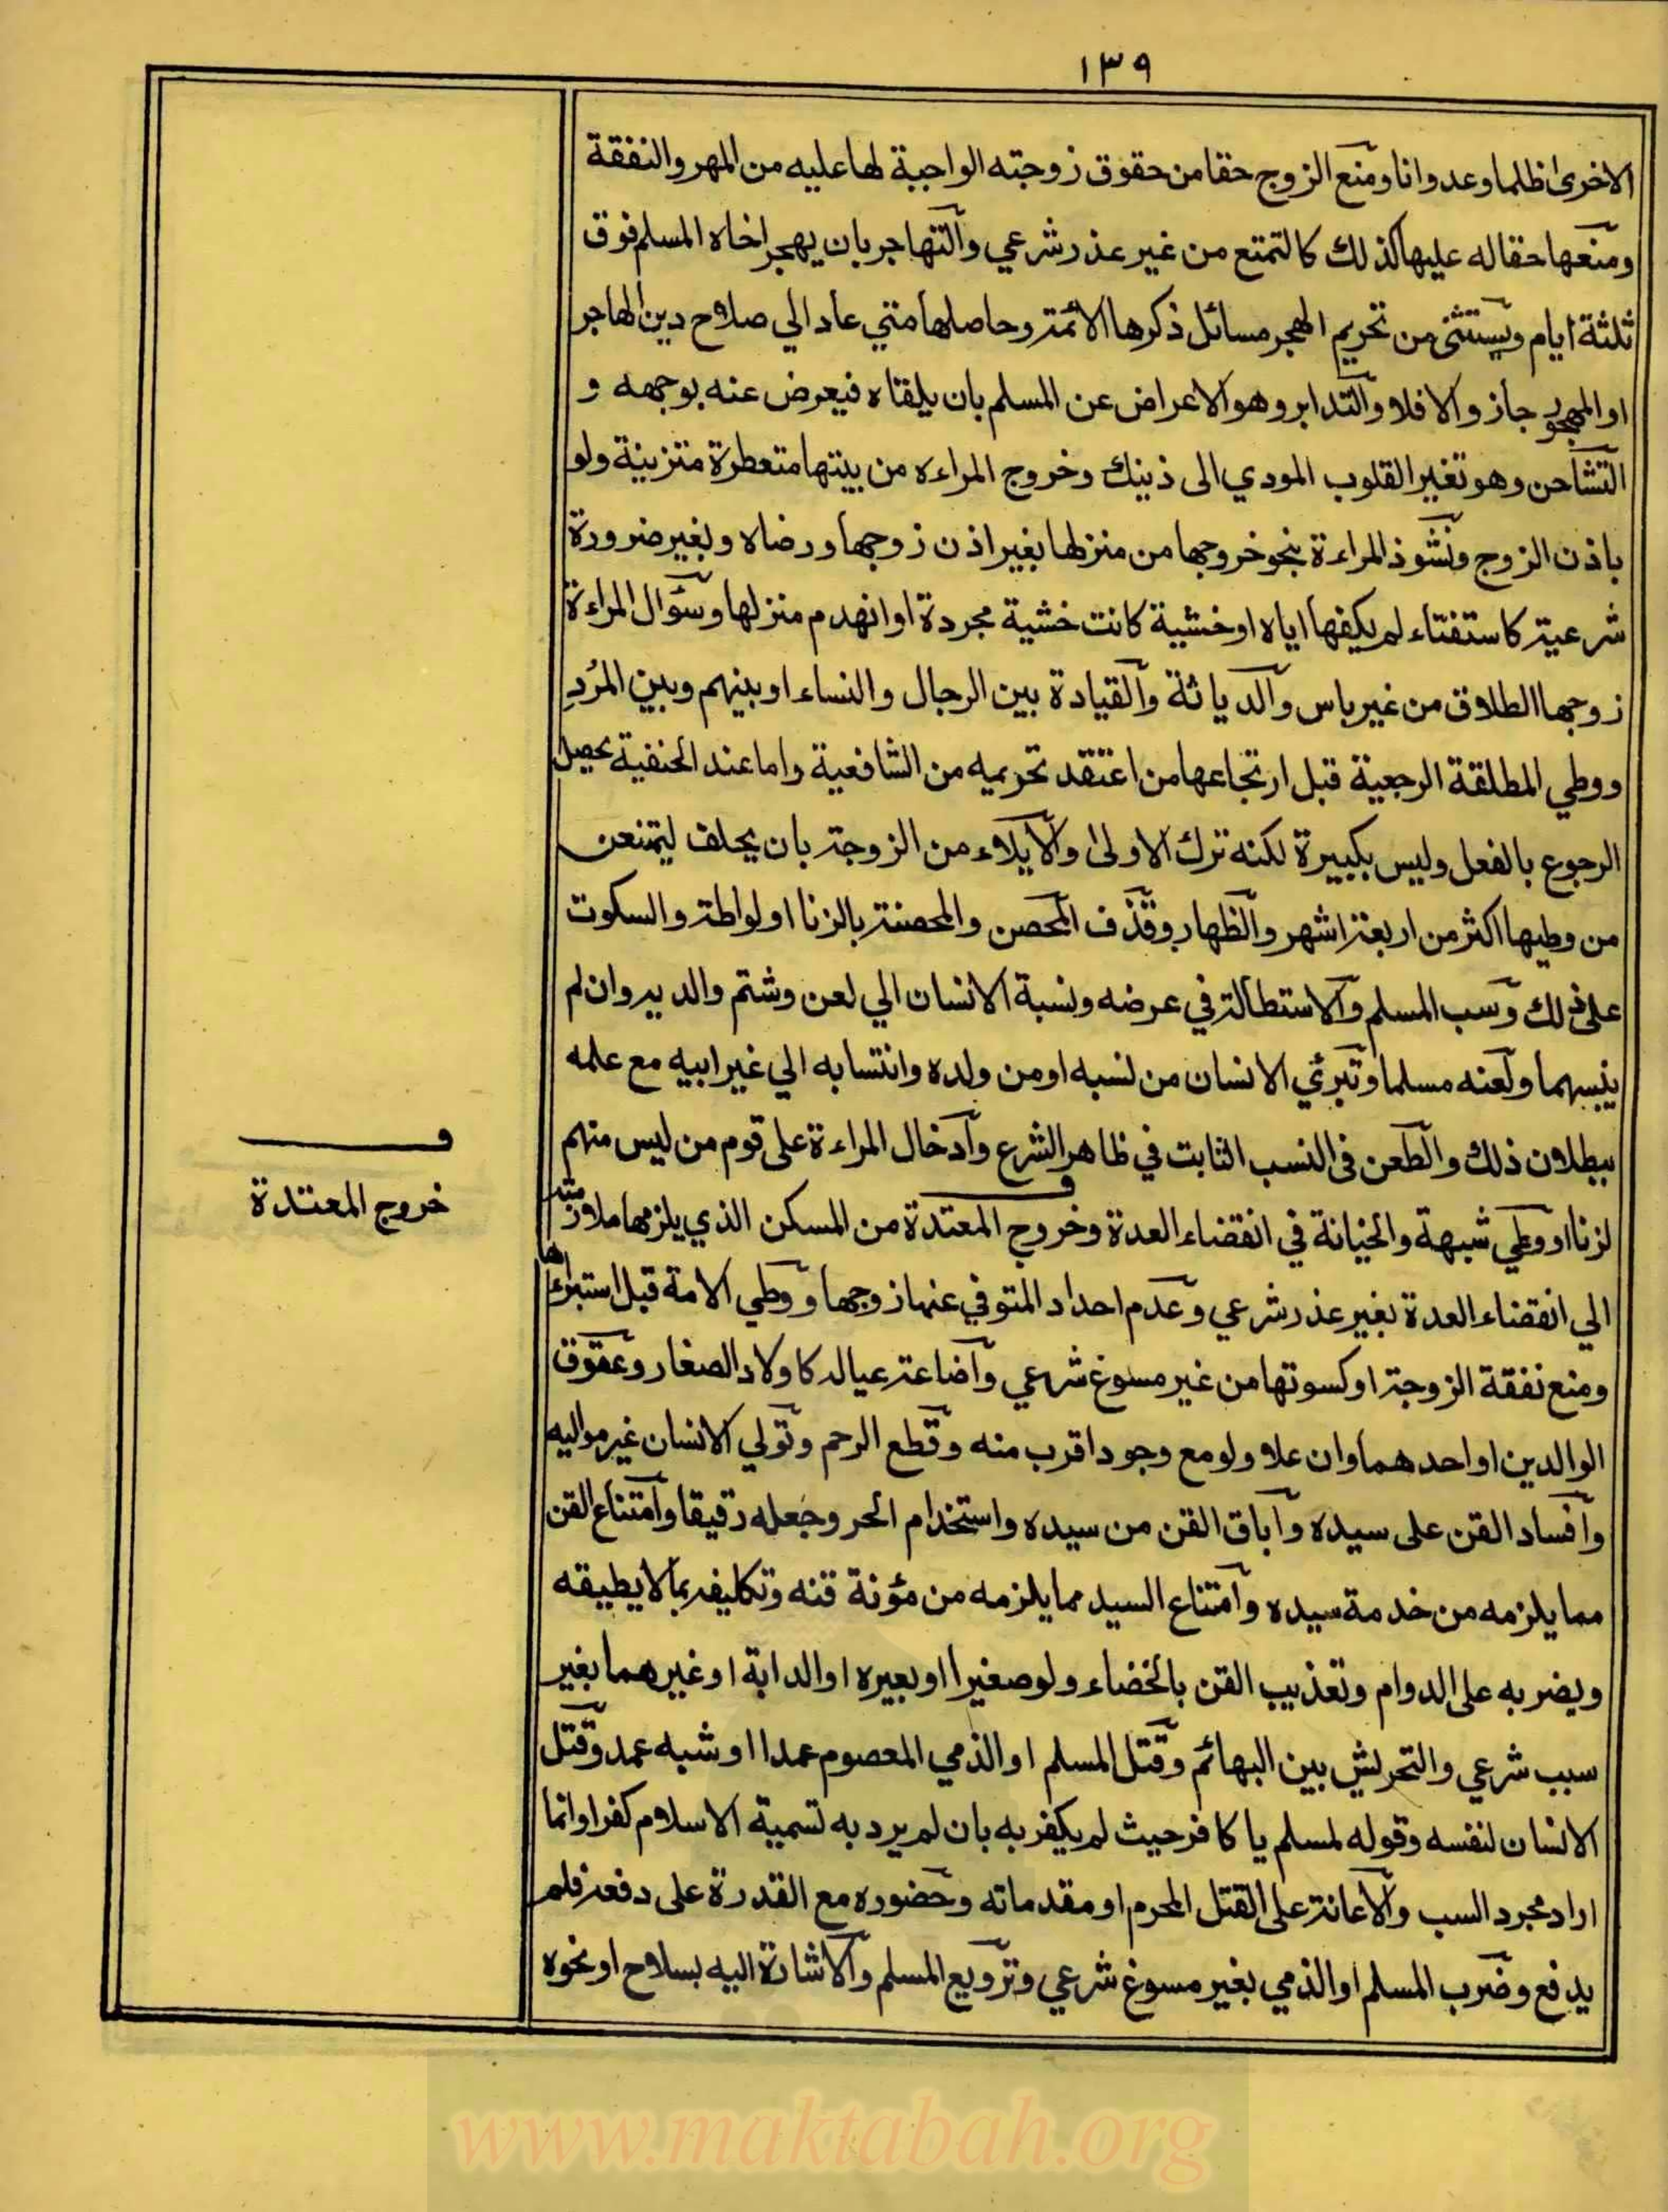 ١٣٩
الاخرى اظلما وعدوانا ومنع الزوج حقا من حقوق زوجته الواجبة لها عليه من المهر والنفقة
ومنعها حقا له عليها كذلك كالتمتع من غير عذر شرعي والتهاجر بان يهجر اخاه المسلم فوق
ثلثة ايام ويستثنى من تحريم الهجر مسائل ذكرها الائمة وحاصلها متي عاد الي صلاح دين الهاجر
او المهجور جاز والا فلا والتدابر وهو الاعراض عن المسلم بان يلقاه فيعرض عنه بوجهه و
التشاحن وهو تغير القلوب المودي الى ذينك وخروج المراءه من بيتها متعطرة متزينة ولو
باذن الزوج ونشوز المراءة بنحو خروجها من منزلها بغير اذن زوجها ورضاه وبغير ضرورة
شرعية كاستفتاء لم يكفها اياه او خشية كانت خشية مجردة او انهدم منزلها وسؤال المراءة
زوجها الطلاق من غير باس والدياثة والقيادة بين الرجال والنساء او بينهم وبين المُردِ
ووطي المطلقة الرجعية قبل ارتجاعها من اعتقد تحريمه من الشافعية واما عند الحنفية يحصل
الرجوع بالفعل وليس بكبيرة لكنه ترك الاولى والايلاء من الزوجة بان يحلف ليمتنعن
من وطيها اكثر من اربعة اشهر والظهار وقذف المحصن والمحصنة بالزنا او لواطة والسكوت
على ذلك وسب المسلم والاستطالة في عرضه ونسبة الانسان الي لعن وشتم والديه وان لم
يسبهما ولعنه مسلما وتبرئي الانسان من نسبه او من ولده وانتسابه الي غير ابيه مع علمه
ببطلان ذلك والطعن فى النسب الثابت في ظاهر الشرع وادخال المراءة على قوم من ليس منهم
لزنا او وطي شبهة والخيانة في انقضاء العدة وخروج المعتدة من المسكن الذي يلزمها ملازمته
الي انقضاء العدة بغير عذر شرعي وعدم احداد المتوفي عنها زوجها ووطي الامة قبل استبراءها
ومنع نفقة الزوجة او كسوتها من غير مسوغ شرعي واضاعة عياله كاولاد الصغار وعقوق
الوالدين او احدهما وان علا ولو مع وجود اقرب منه وقطع الرحم وتولي الانسان غير مواليه
وافساد القن على سيده واباق القن من سيده واستخدام الحر وجعله رقيقا وامتناع القن
مما يلزمه من خدمة سيده وامتناع السيد مما يلزمه من مؤنة قنه وتكليفه بما لا يطيقه
ويضربه على الدوام وتعذيب القن بالخضاء ولو صغيرا او بعيره او الدابة او غيرهما بغير
سبب شرعي والتحريش بين البهائم وقتل المسلم او الذمي المعصوم عمدا او شبه عمد وقتل
الانسان لنفسه وقوله لمسلم يا كافر حيث لم يكفر به بان لم يرد به تسمية الاسلام كفرا وانما
اراد مجرد السب والاعانة على القتل المحرم او مقدماته وحضوره مع القدرة على دفعه فلم
يدفع وضرب المسلم او الذمي بغير مسوغ شرعي وترويع المسلم والاشارة اليه بسلاح او نحوه
ف
خروج المعتدة
www.maktabah.org